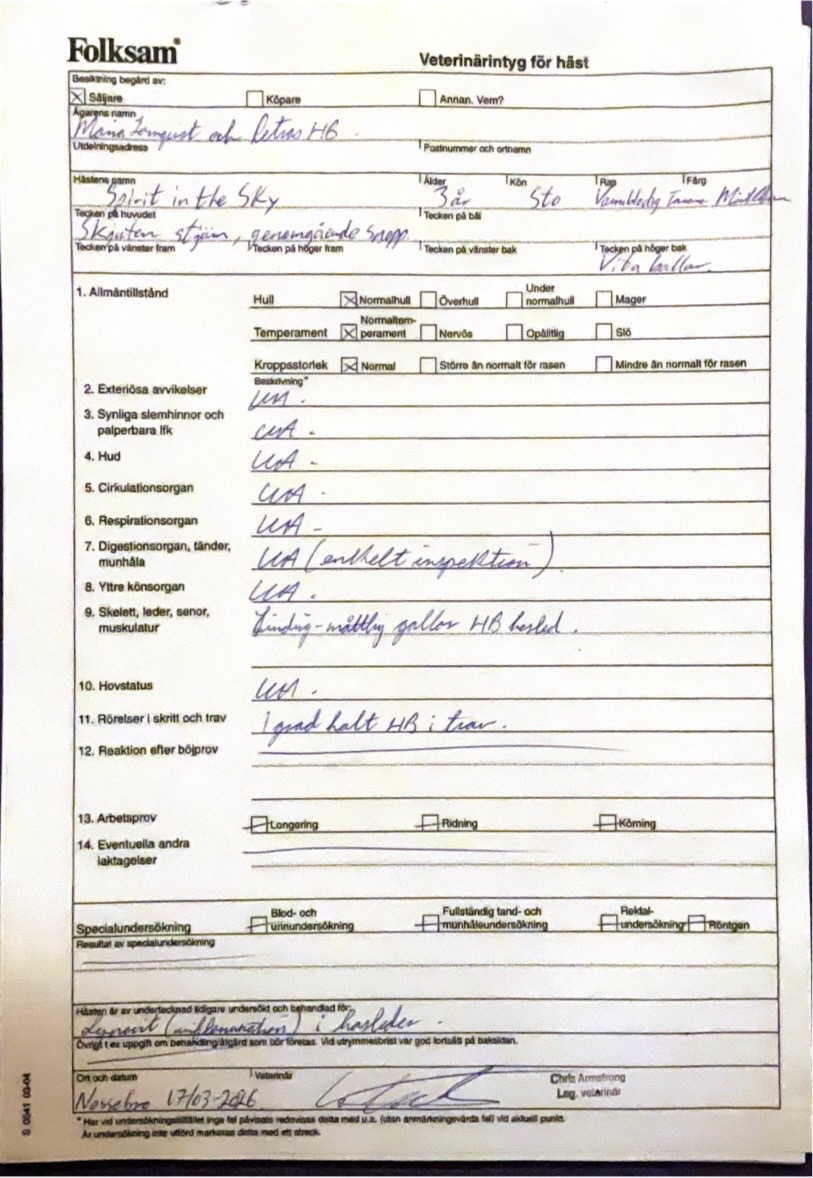 Folksam
Veterinärintyg för häst
Besiktning begärd av:
Säljare Köpare Annan. Vem?
Ägarens namn
Maria och Petras HB
Utdelningsadress Postnummer och ortnamn
Hästens namn Ålder Kön Ras Färg
Spirit in the Sky 3 år Sto Varmblodig
Tecken på huvudet Tecken på bål
stjärn, genomgående snopp.
Tecken på vänster fram Tecken på höger fram Tecken på vänster bak Tecken på höger bak
Vita ballar.
1. Allmäntillstånd Hull Normalhull Överhull Under normalhull Mager
Temperament Normaltem-perament Nervös Opålitlig Slö
Kroppsstorlek Normal Större än normalt för rasen Mindre än normalt för rasen
Beskrivning*
2. Exteriösa avvikelser UA.
3. Synliga slemhinnor och
palperbara lfk UA -
4. Hud UA -
5. Cirkulationsorgan UA -
6. Respirationsorgan UA -
7. Digestionsorgan, tänder,
munhåla UA (enkelt inspektion)
8. Yttre könsorgan UA.
9. Skelett, leder, senor,
muskulatur Lindrig-måttlig gallor HB hasled.
10. Hovstatus UA.
11. Rörelser i skritt och trav 1 grad halt HB i trav.
12. Reaktion efter böjprov
13. Arbetsprov Longering Ridning Körning
14. Eventuella andra
iakttagelser
Specialundersökning Blod- och urinundersökning Fullständig tand- och munhåleundersökning Rektal-undersökning Röntgen
Resultat av specialundersökning
Hästen är av undertecknad tidigare undersökt och behandlad för:
Synovit (inflammation) i hasleder.
Övrigt t ex uppgift om behandling/åtgärd som bör företas. Vid utrymmesbrist var god fortsätt på baksidan.
Ort och datum Veterinär Chris Armstrong
Nossebro 17/03-2026 Leg. veterinär
* Har vid undersökningstillfället inga fel påvisats redovisas detta med u.a. (utan anmärkningsvärda fel) vid aktuell punkt.
Är undersökning inte utförd markeras detta med ett streck.
S 0541 03-04